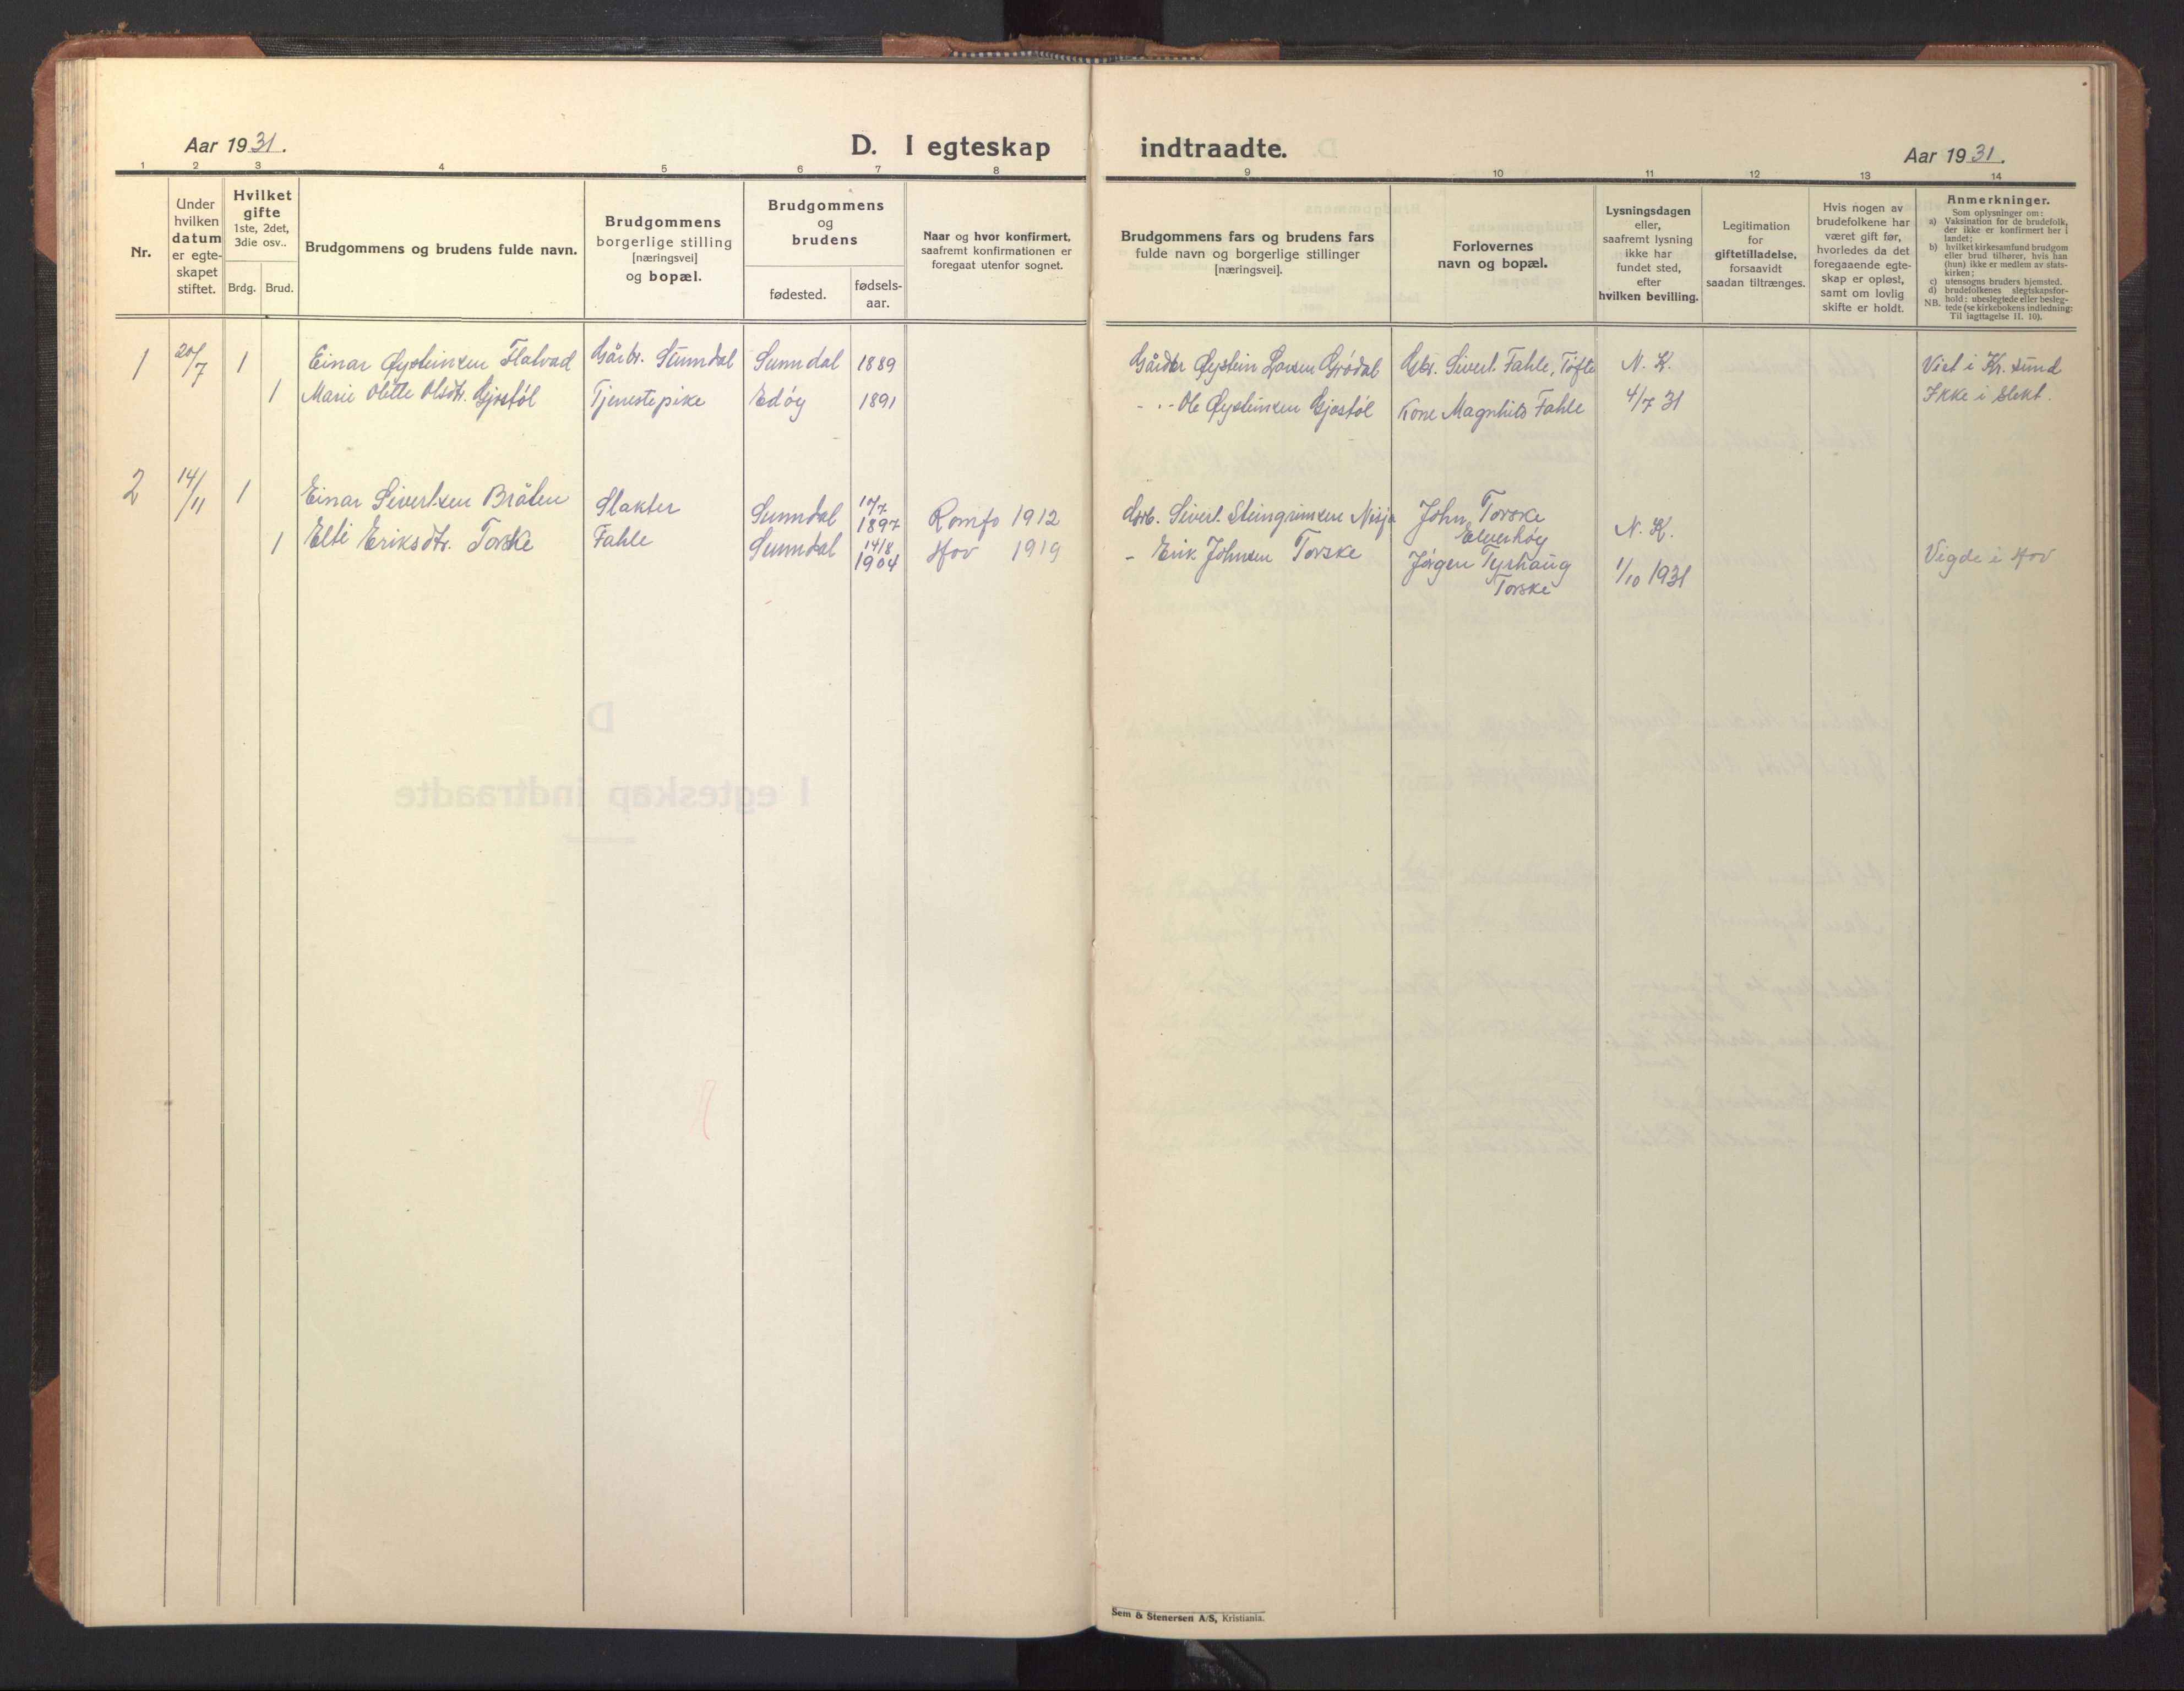 Aar 1931.
D. I egteskap indtraadte.
Aar 1931.
1 2 3 4 5 6 7 8 9 10 11 12 13 14
Nr.
Under hvilken datum er egte-skapet stiftet.
Hvilket gifte 1ste, 2det, 3die osv..
Brdg. Brud.
Brudgommens og brudens fulde navn.
Brudgommens borgerlige stilling [næringsvei] og bopæl.
Brudgommens og brudens
fødested.
fødsels-aar.
Naar og hvor konfirmert, saafremt konfirmationen er foregaat utenfor sognet.
Brudgommens fars og brudens fars fulde navn og borgerlige stillinger [næringsvei].
Forlovernes navn og bopæl.
Lysningsdagen eller, saafremt lysning ikke har fundet sted, efter hvilken bevilling.
Legitimation for giftetilladelse, forsaavidt saadan tiltrænges.
Hvis nogen av brudefolkene har været gift før, hvorledes da det foregaaende egte-skap er opløst, samt om lovlig skifte er holdt.
Anmerkninger.
Som oplysninger om:
a) Vaksination for de brudefolk, der ikke er konfirmert her i landet;
b) hvilket kirkesamfund brudgom eller brud tilhører, hvis han (hun) ikke er medlem av stats-kirken;
c) utensogns bruders hjemsted.
d) brudefolkenes slegtskapsfor-hold: ubeslegtede eller besleg-tede (se kirkebokens indledning:
NB. Til iagttagelse II. 10).
1 20/7 1 Einar Øysteinsen Flatvad Gårbr. Sunndal Sunndal 1889 Gårdbr Øystein Larsen Grødal Gbr. Sivert Fahle, Tofte N. K. Viet i Kr. sund
1 Marie Olette Olsdtr. Gjøstøl Tjenestepike Edøy 1891 - . - Ole Øysteinsen Gjøstøl Kone Magnhild Fahle 4/7 31 Ikke i slekt.
2 14/11 1 Einar Sivertsen Bråten Slakter Sunndal 17/7 1897 Romfo 1912 Grb. Sivert Steingrimsen Nisja John Torske Elverhøy N. K.
1 Elti Eriksdtr. Torske Fahle Sunndal 14/8 1904 Hov 1919 - Erik Johnsen Torske Jørgen Tyrhaug Torske 1/10 1931 Vigde i Hov
Sem & Stenersen A/S, Kristiania.